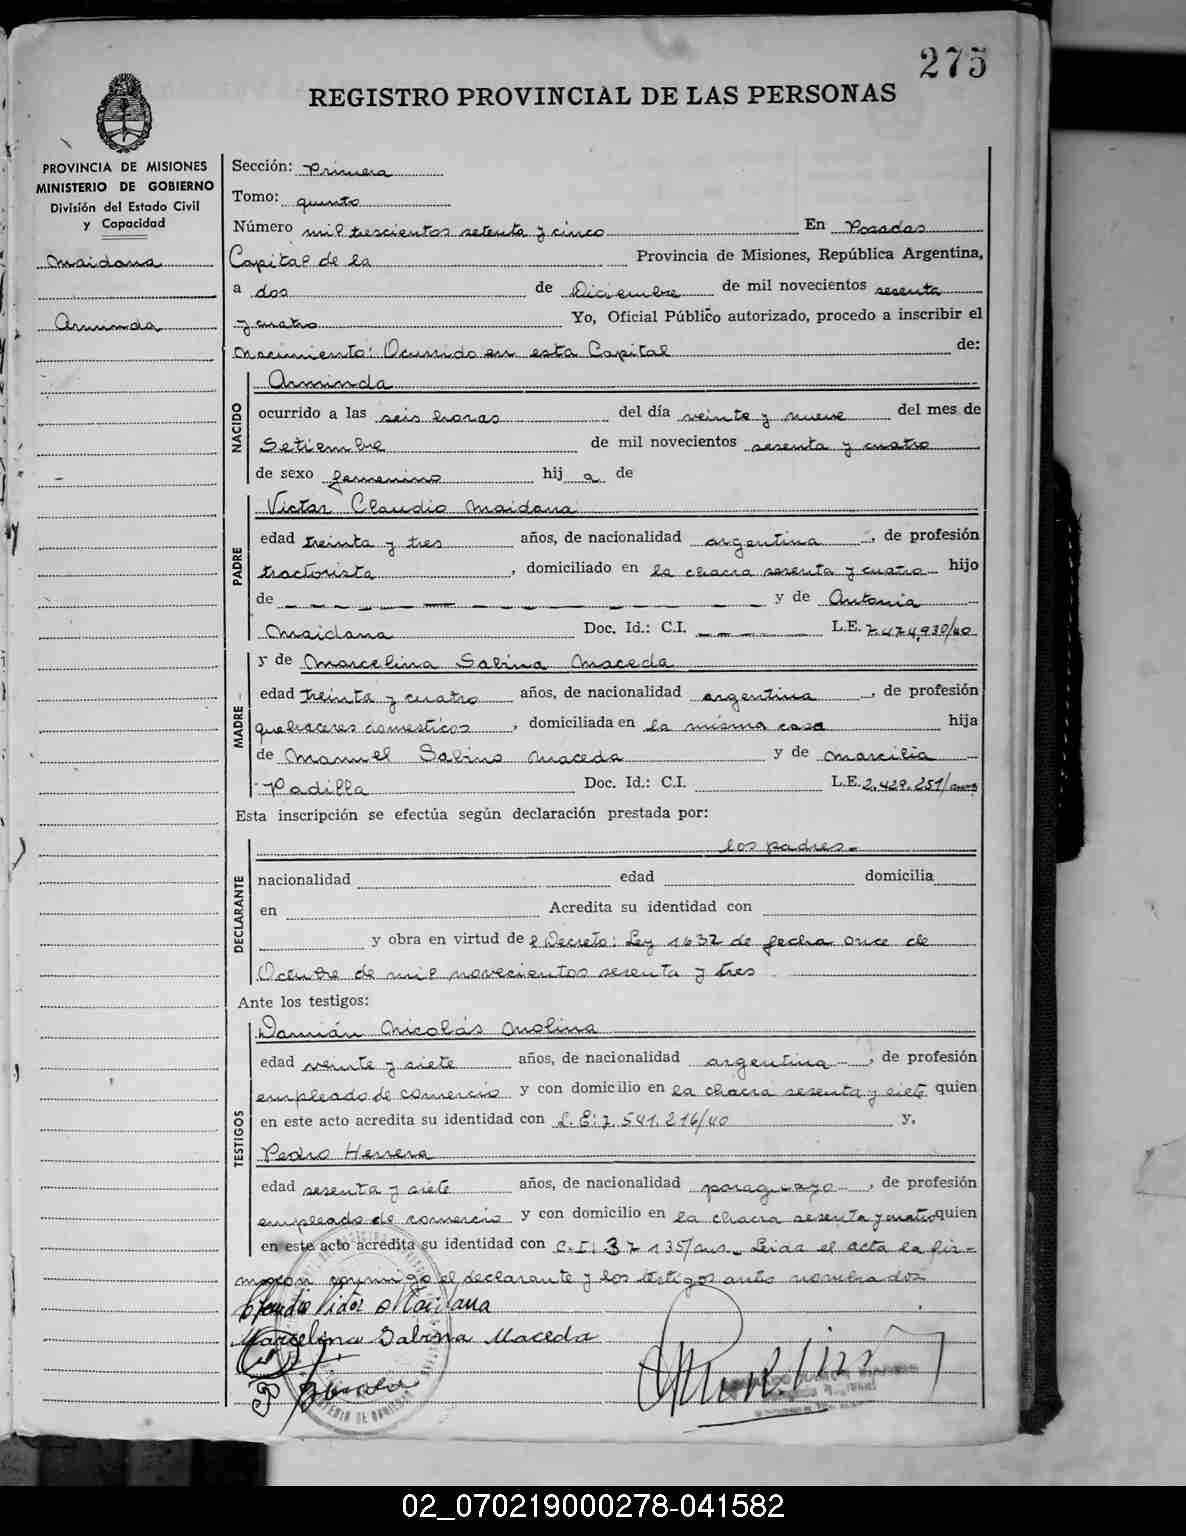 275
REGISTRO PROVINCIAL DE LAS PERSONAS
PROVINCIA DE MISIONES
MINISTERIO DE GOBIERNO
División del Estado Civil
y Capacidad
Maidana
Arminda
Sección: Primera
Tomo: quinto
Número mil trescientos setenta y cinco En Posadas
Capital de la Provincia de Misiones, República Argentina,
a dos de Diciembre de mil novecientos sesenta
y cuatro Yo, Oficial Público autorizado, procedo a inscribir el
nacimiento: Ocurrido en esta Capital de:
NACIDO
Arminda
ocurrido a las seis horas del día veinte y nueve del mes de
Setiembre de mil novecientos sesenta y cuatro
de sexo femenino hij a de
PADRE
Victor Claudio Maidana
edad treinta y tres años, de nacionalidad argentina, de profesión
tractorista, domiciliado en la chacra sesenta y cuatro hijo
de — — — — — — — — — — y de Antonia
Maidana Doc. Id.: C.I. — — — — L.E. 7.474.930/40
MADRE
y de Marcelina Sabina Maceda
edad treinta y cuatro años, de nacionalidad argentina, de profesión
quehaceres domesticos, domiciliada en la misma casa hija
de Manuel Sabino Maceda y de Marcilia
Padilla Doc. Id.: C.I. L.E. 2.429.251/
Esta inscripción se efectúa según declaración prestada por:
DECLARANTE
los padres.-
nacionalidad edad domicilia
en Acredita su identidad con
y obra en virtud de l Decreto: Ley 1632 de fecha once de
Octubre de mil novecientos sesenta y tres
Ante los testigos:
TESTIGOS
Damián Nicolás Molina
edad veinte y siete años, de nacionalidad argentina, de profesión
empleado de comercio y con domicilio en la chacra sesenta y siete quien
en este acto acredita su identidad con L.E: 7.541.216/40 y.
Pedro Herrera
edad sesenta y siete años, de nacionalidad paraguayo, de profesión
empleado de comercio y con domicilio en la chacra sesenta y cuatro quien
en este acto acredita su identidad con C.I: 37135/ Leida el acta la fir-
maron conmigo el declarante y los testigos antes nombrados
Claudio Victor Maidana
Marcelina Sabina Maceda
02_070219000278-041582